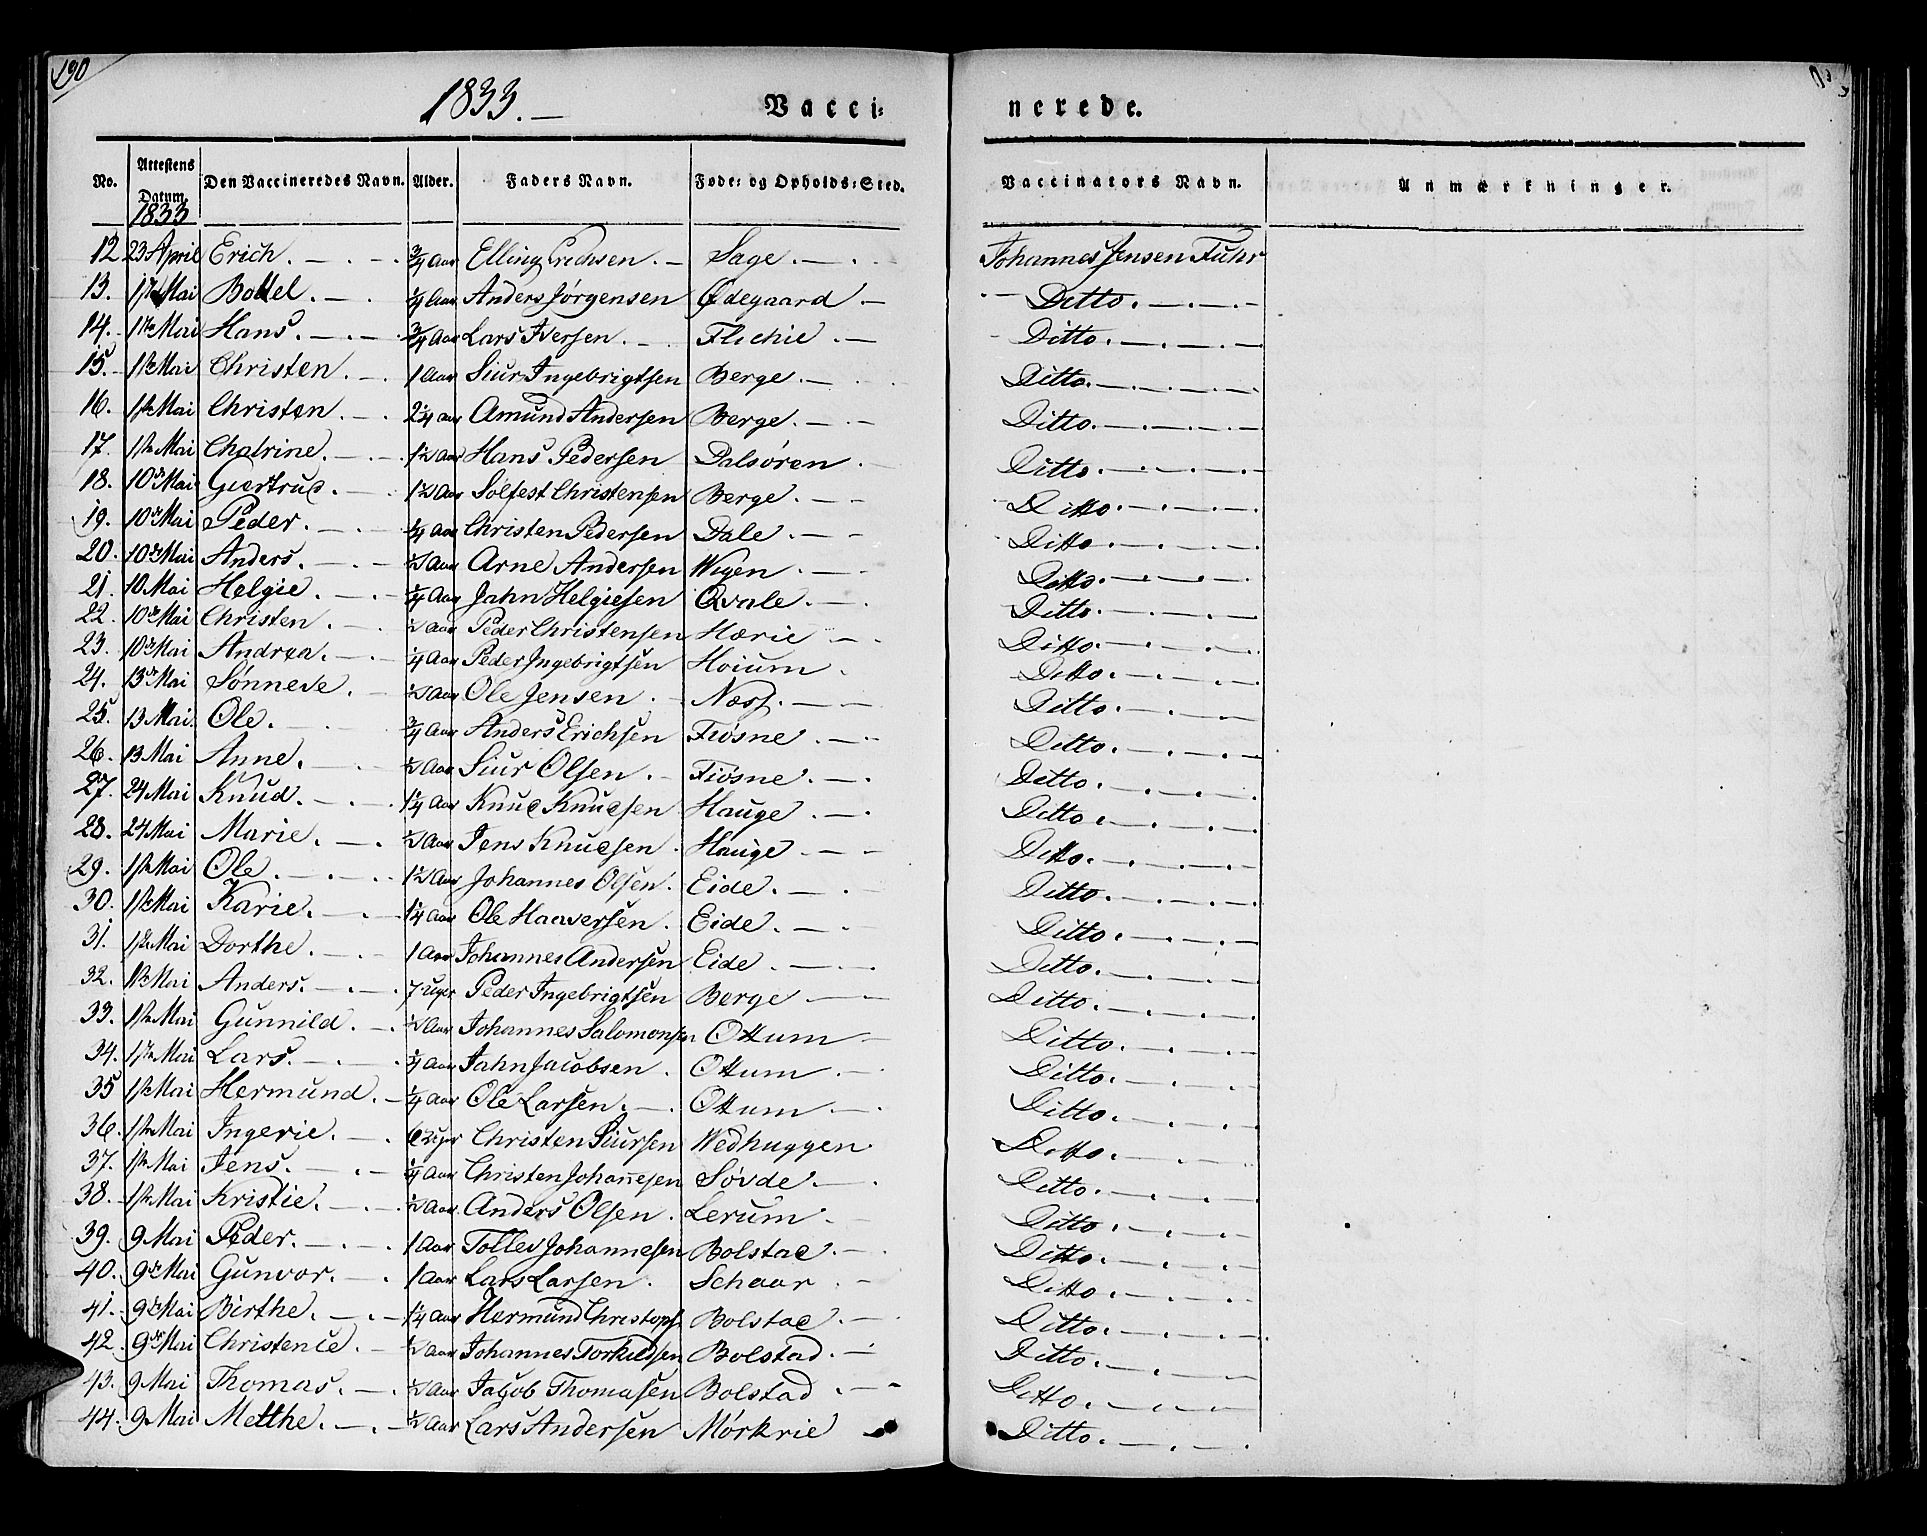 190
1833. —
Vacci=
nerede.
No. Attestens Datum. Den Vaccineredes Navn. Alder. Faders Navn. Føde= og Opholds=Sted. Vaccinators Navn. Anmærkninger.
1833
12 23 April Erich. 3/4 Aar Elling Erichsen. Sage. Johannes Jensen Fuhr
13. 1ste Mai Bottel. 1/4 Aar Anders Jørgensen Ødegaard Ditto.
14. 1ste Mai Hans. 3/4 Aar Lars Iversen. Flichie Ditto.
15. 1ste Mai Christen. 1 Aar Siur Ingebrigtsen Berge. Ditto.
16. 1ste Mai Christen. 2 1/4 Aar Amund Andersen Berge. Ditto.
17. 1ste Mai Chatrine. 1 1/2 Aar Hans Pedersen Dalsøren Ditto.
18. 10de Mai Giertrud. 1 1/2 Aar Solfest Christensen Berge. Ditto.
19. 10de Mai Peder. 1/4 Aar Christen Pedersen Dale. Ditto.
20. 10de Mai Anders. 1/2 Aar Arne Andersen Wigen Ditto.
21. 10 Mai Helgie. 1/4 Aar Jahn Helgiesen Qvale. Ditto.
22. 10de Mai Christen. 1/2 Aar Peder Christensen Hærie Ditto.
23. 10de Mai Andrea. 1/4 Aar Peder Ingebrigtsen Hoium Ditto.
24. 13de Mai Sønneve. 1/2 Aar Ole Jensen Næss. Ditto.
25. 13 Mai Ole. 3/4 Aar Anders Erichsen Fiøsne Ditto.
26. 13 Mai Anne. 1/2 Aar Siur Olsen. Fiøsne. Ditto.
27. 24 Mai Knud. 1 1/4 Aar Knud Knudsen Hauge Ditto.
28. 24 Mai Marie. 1/2 Aar Jens Knudsen. Hauge Ditto.
29. 1ste Mai Ole. 1 1/2 Aar Johannes Olsen. Eide. Ditto.
30. 1ste Mai Karie. 1 1/4 Aar Ole Haaversen. Eide. Ditto.
31. 1ste Mai Dorthe. 1 Aar Johannes Andersen Eide. Ditto.
32. 1ste Mai Anders. 7 Uger Peder Ingebrigtsen Berge Ditto.
33. 1ste Mai Gunnild. 1/2 Aar Johannes Salomonsen Ottum Ditto.
34. 1ste Mai Lars. 1/4 Aar Jahn Jacobsen. Ottum Ditto.
35 1ste Mai Hermund. 1/4 Aar Ole Larsen. Ottum Ditto.
36. 1ste Mai Ingerie. 6 Uger Christen Siursen Wedhuggen Ditto.
37. 1ste Mai Jens. 1/4 Aar Christen Johannesen Søvde. Ditto.
38. 1ste Mai Kristie. 1/2 Aar Anders Olsen. Lerum Ditto.
39. 9 Mai Peder. 1 Aar Tollev Johannesen Bolstad. Ditto.
40. 9de Mai Gunvor. 1 Aar Lars Larsen. Schaar Ditto.
41. 9de Mai Birthe. 1 1/4 Aar Hermund Christophs. Bolstad. Ditto.
42. 9de Mai Christence. 1/2 Aar Johannes Torkildsen Bolstad. Ditto.
43. 9 Mai Thomas. 1/2 Aar Jacob Thomasen Bolstad Ditto.
44. 9 Mai Metthe. 1/2 Aar Lars Andersen Mørkrie Ditto.